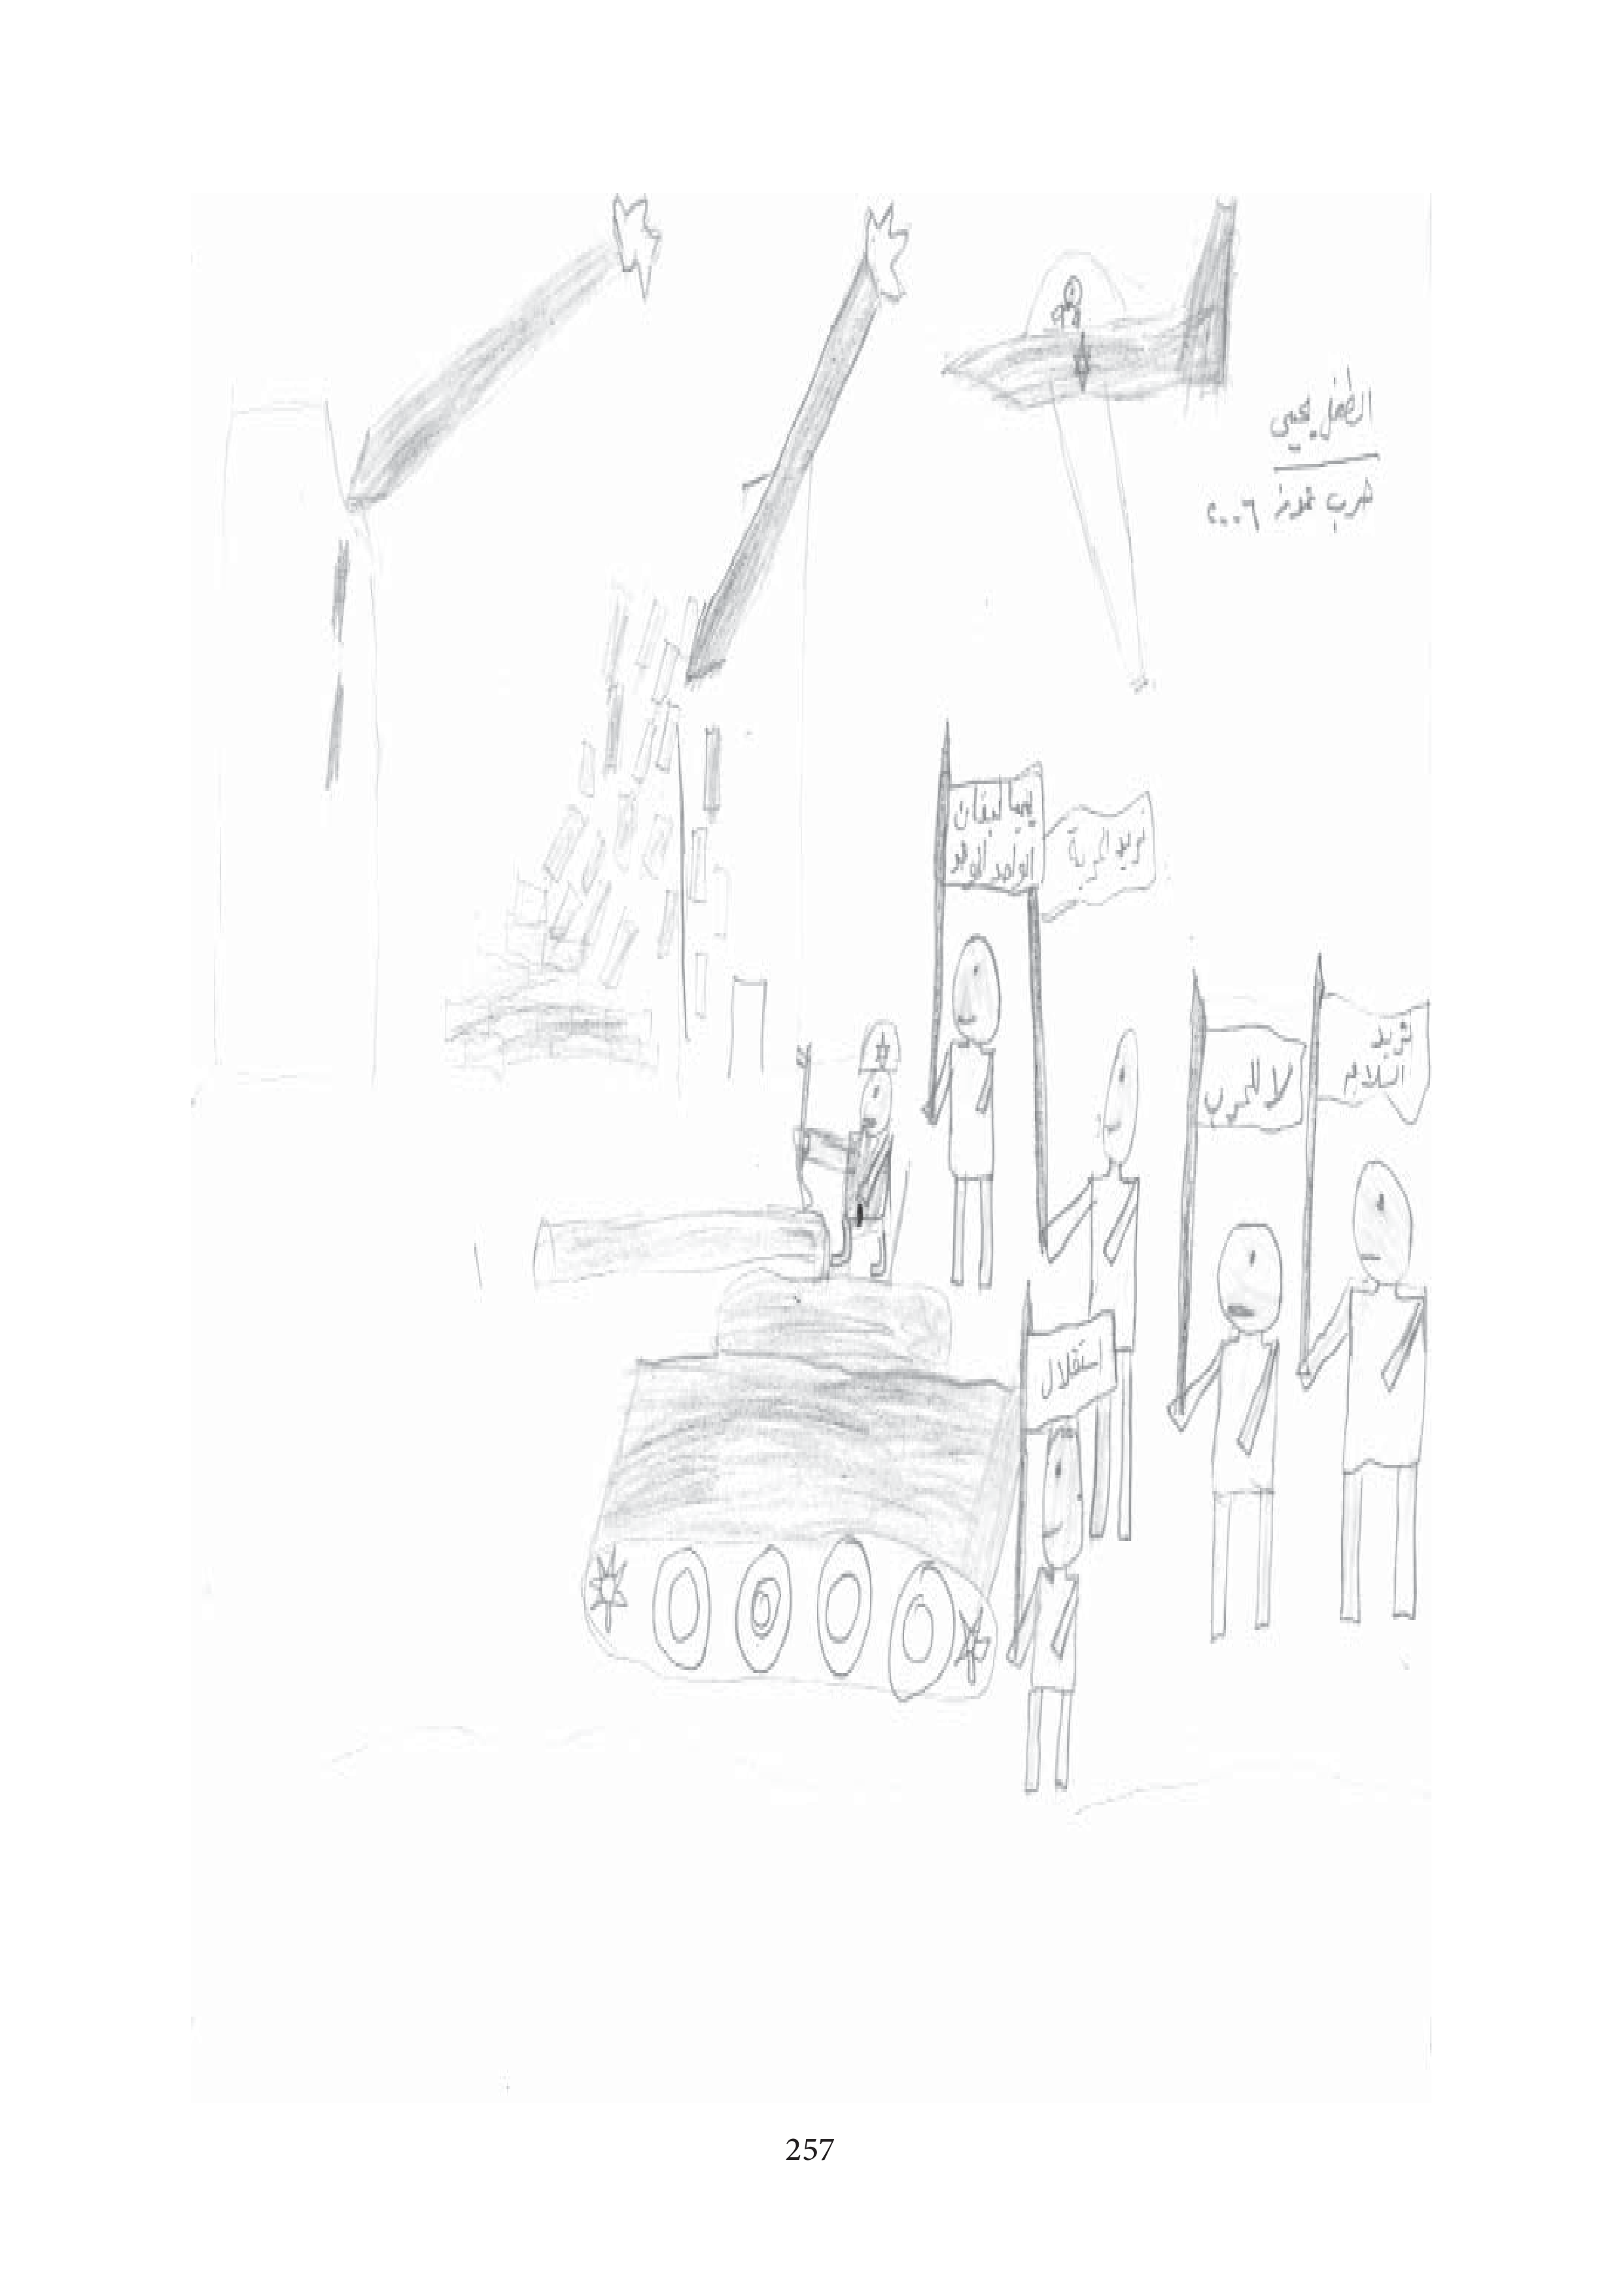 الطفل يحيى
حرب تموز ٢٠٠٦
يحيا لبنان
الواحد الموحد
نريد الحرية
نريد
السلام
لا للحرب
استقلال
257